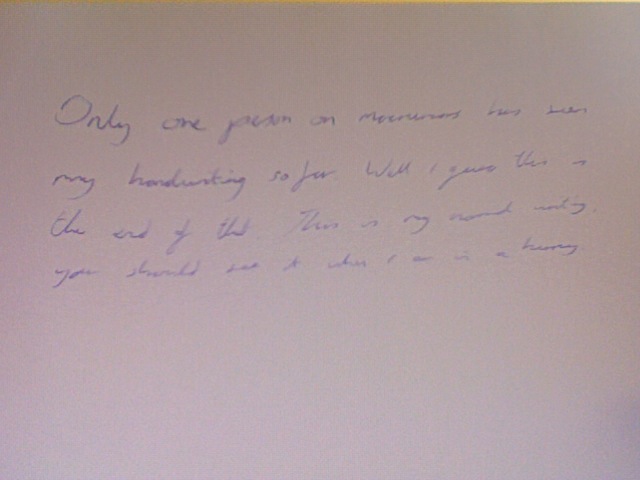 Only one person on has seen
my handwriting so far. Well I guess this is
the end of that. This is my normal writing.
you should see it when I am in a hurry